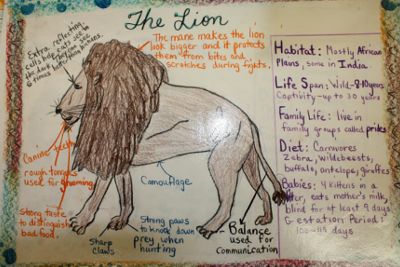 The Lion
Extra reflecting
cells help cats see in
the dark
6 times better than humans.
The mane makes the lion
look bigger and it protects
them from bites and
scratches during fights.
Canine teeth
rough tongues
used for grooming.
Strong taste
to distinguish
bad food.
Camouflage
Sharp
claws
Strong paws
to knock down
prey when
hunting
Balance
used for
communication
Habitat: Mostly African
Plains, some in India.
Life Span: Wild-8-10years
Captivity-up to 30 years
Family Life: live in
family groups called prides
Diet: Carnivores
Zebra, wildebeests,
buffalo, antelope, giraffes
Babies: 4 kittens in a
litter, eats mother's milk,
blind for at least 9 days.
Gestation Period:
days